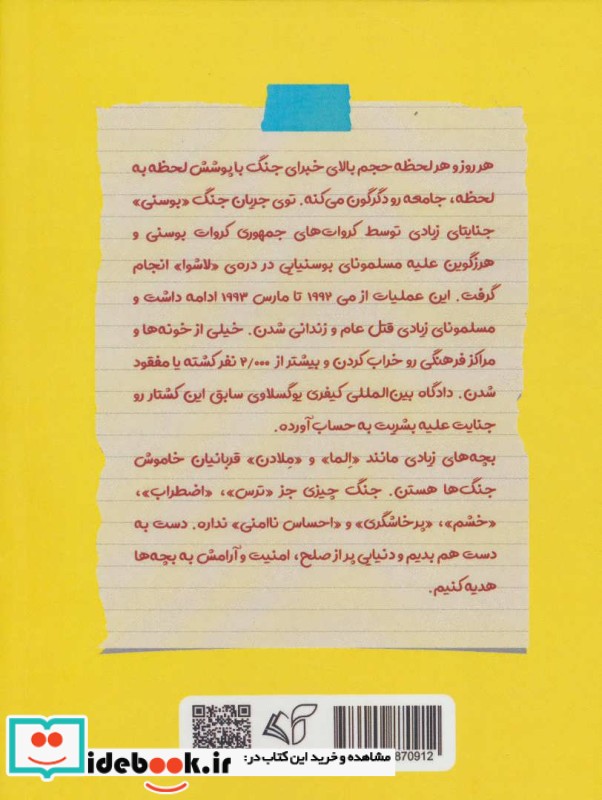 هر روز و هر لحظه حجم بالای خبرای جنگ با پوشش لحظه به
لحظه، جامعه رو دگرگون می‌کنه. توی جریان جنگ «بوسنی»
جنایتای زیادی توسط کروات‌های جمهوری کروات بوسنی و
هرزگوین علیه مسلمونای بوسنیایی در دره‌ی «لاشوا» انجام
گرفت. این عملیات از می ۱۹۹۲ تا مارس ۱۹۹۳ ادامه داشت و
مسلمونای زیادی قتل عام و زندانی شدن. خیلی از خونه‌ها و
مراکز فرهنگی رو خراب کردن و بیشتر از ۲/۰۰۰ نفر کشته یا مفقود
شدن. دادگاه بین‌المللی کیفری یوگسلاوی سابق این کشتار رو
جنایت علیه بشریت به حساب آورده.
بچه‌های زیادی مانند «اِلما» و «مِلادن» قربانیان خاموش
جنگ‌ها هستن. جنگ چیزی جز «ترس»، «اضطراب»،
«خشم»، «پرخاشگری» و «احساس ناامنی» نداره. دست به
دست هم بدیم و دنیایی پر از صلح، امنیت و آرامش به بچه‌ها
هدیه کنیم.
870912
مشاهده و خرید این کتاب در:
idebook.ir